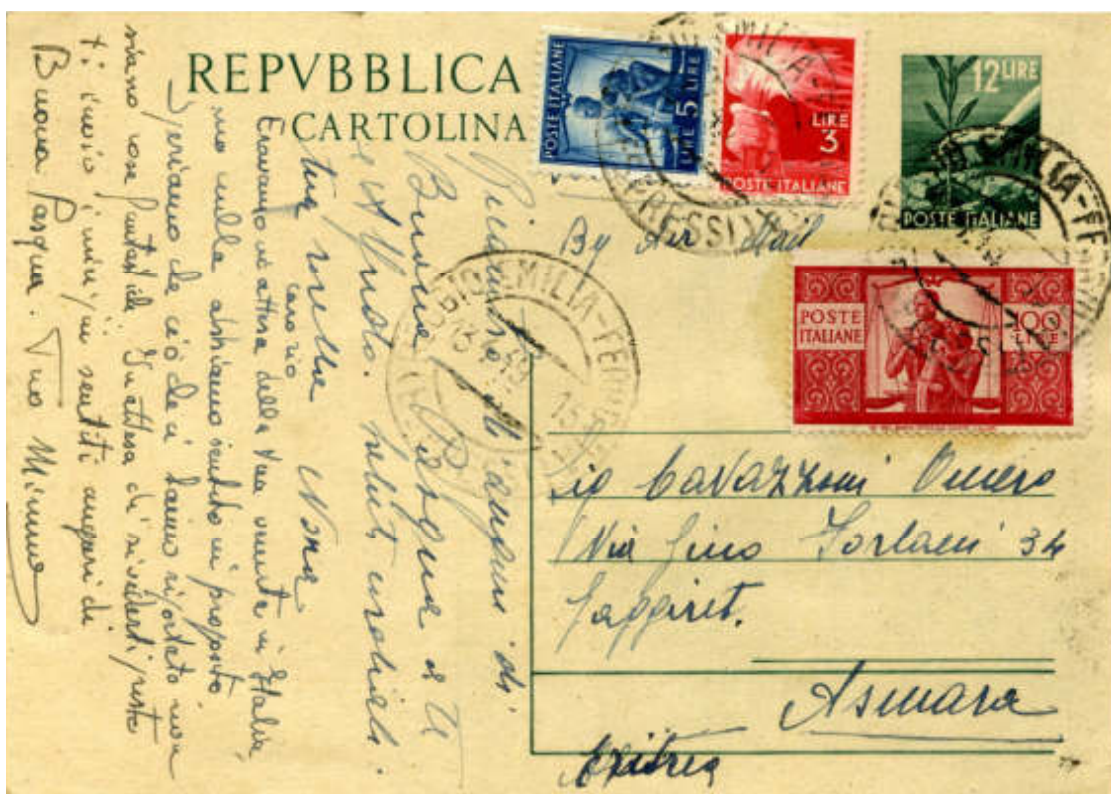 REPVBBLICA
CARTOLINA
POSTE ITALIANE
LIRE 5
LIRE 3
POSTE ITALIANE
12 LIRE
POSTE ITALIANE
POSTE ITALIANE
100 LIRE
REGGIO EMILIA-FERROVIA
By Air Mail
Sig Cavazzoni Omero
Via Gino 34
Gaggiret.
Asmara
Eritrea
Buona Pasqua a te
e Afflato. saluti
tua sorella Nora
caro zio
Eravamo in attesa della tua venuta in Italia
ma nulla abbiamo sentito in proposito
Speriamo che ciò che ci hanno riportato non
siano cose fantastiche. In attesa di rivederti presto
ti invio i miei più sentiti auguri di
Buona Pasqua. Tuo Mimmo